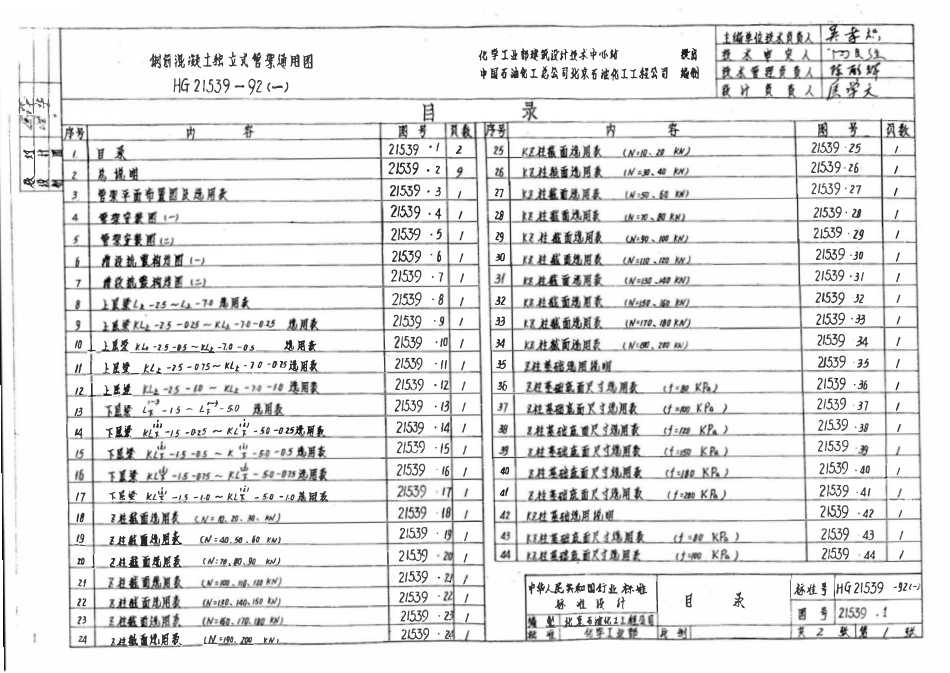 钢筋混凝土独立式管架通用图
HG 21539-92(一)
化学工业部建筑设计技术中心站
中国石油化工总公司北京石油化工工程公司 编制
主编单位技术负责人
技术审定人
技术管理负责人
设计负责人
目 录
序号 内 容 图号 页数
1 目录 21539·1 2
2 总说明 21539·2 9
3 管架平面布置图及选用表 21539·3 1
4 管架安装图(一) 21539·4 1
5 管架安装图(二) 21539·5 1
6 21539·6 1
7 21539·7 1
8 上层梁L上-2.5~L上-7.0 选用表 21539·8 1
9 上层梁 KL上-2.5-0.25~KL上-7.0-0.25 选用表 21539·9 1
10 上层梁 KL上-2.5-0.5~KL上-7.0-0.5 选用表 21539·10 1
11 上层梁 KL上-2.5-0.75~KL上-7.0-0.75选用表 21539·11 1
12 上层梁 KL上-2.5-1.0~KL上-7.0-1.0 选用表 21539·12 1
13 下层梁 -1.5~ -5.0 选用表 21539·13 1
14 下层梁 -1.5-0.25~ -5.0-0.25选用表 21539·14 1
15 下层梁 -1.5-0.5~ -5.0-0.5选用表 21539·15 1
16 下层梁 -1.5-0.75~ -5.0-0.75选用表 21539·16 1
17 下层梁 -1.5-1.0~ -5.0-1.0选用表 21539·17 1
18 Z柱截面选用表 (N=10、20、30、kN) 21539·18 1
19 Z柱截面选用表 (N=40、50、60 kN) 21539·19 1
20 Z柱截面选用表 (N=70、80、90 kN) 21539·20 1
21 Z柱截面选用表 (N=100、110、120 kN) 21539·21 1
22 Z柱截面选用表 (N=130、140、150 kN) 21539·22 1
23 Z柱截面选用表 (N=160、170、180 kN) 21539·23 1
24 Z柱截面选用表 (N=190、200 kN) 21539·24 1
序号 内 容 图 号 页数
25 KZ柱截面选用表 (N=10、20 kN) 21539·25 1
26 KZ柱截面选用表 (N=30、40 kN) 21539·26 1
27 KZ柱截面选用表 (N=50、60 kN) 21539·27 1
28 KZ柱截面选用表 (N=70、80 kN) 21539·28 1
29 KZ柱截面选用表 (N=90、100 kN) 21539·29 1
30 KZ柱截面选用表 (N=110、120 kN) 21539·30 1
31 KZ柱截面选用表 (N=130、140 kN) 21539·31 1
32 KZ柱截面选用表 (N=150、160 kN) 21539 32 1
33 KZ柱截面选用表 (N=170、180 kN) 21539·33 1
34 KZ柱截面选用表 (N=190、200 kN) 21539 34 1
35 Z柱基础选用说明 21539·35 1
36 Z柱基础底面尺寸选用表 (f=80 KPa) 21539·36 1
37 Z柱基础底面尺寸选用表 (f=100 KPa) 21539·37 1
38 Z柱基础底面尺寸选用表 (f=120 KPa) 21539·38 1
39 Z柱基础底面尺寸选用表 (f=150 KPa) 21539·39 1
40 Z柱基础底面尺寸选用表 (f=180 KPa) 21539·40 1
41 Z柱基础底面尺寸选用表 (f=200 KPa) 21539·41 1
42 KZ柱基础选用说明 21539·42 1
43 KZ柱基础底面尺寸选用表 (f=80 KPa) 21539·43 1
44 KZ柱基础底面尺寸选用表 (f=100 KPa) 21539·44 1
中华人民共和国行业标准
标准设计
编制 北京石油化工工程公司
批准 化学工业部 比例
目 录
标准号 HG 21539-92(一)
图号 21539·1
共 2 张 第 1 张